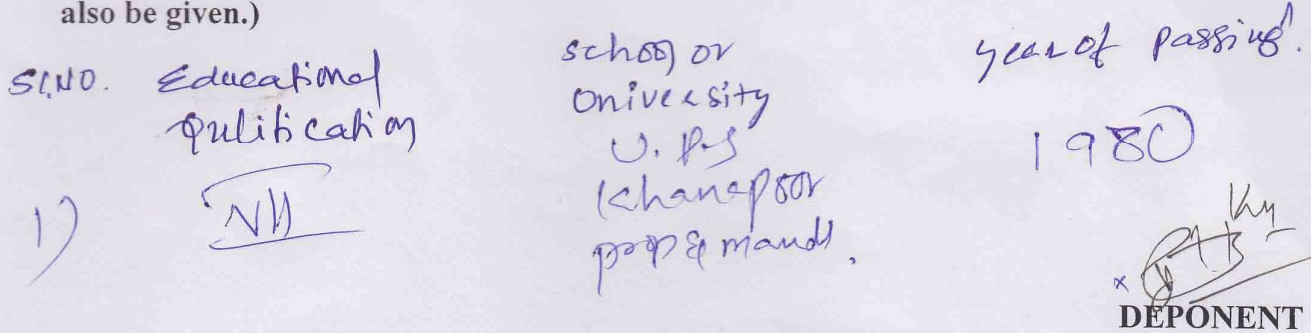 also be given.)
Sl.NO. Educational Qulitication
school or Oniversity
year of passing.
1)
VII
U. P.S
Khanapoor
1980
DEPONENT